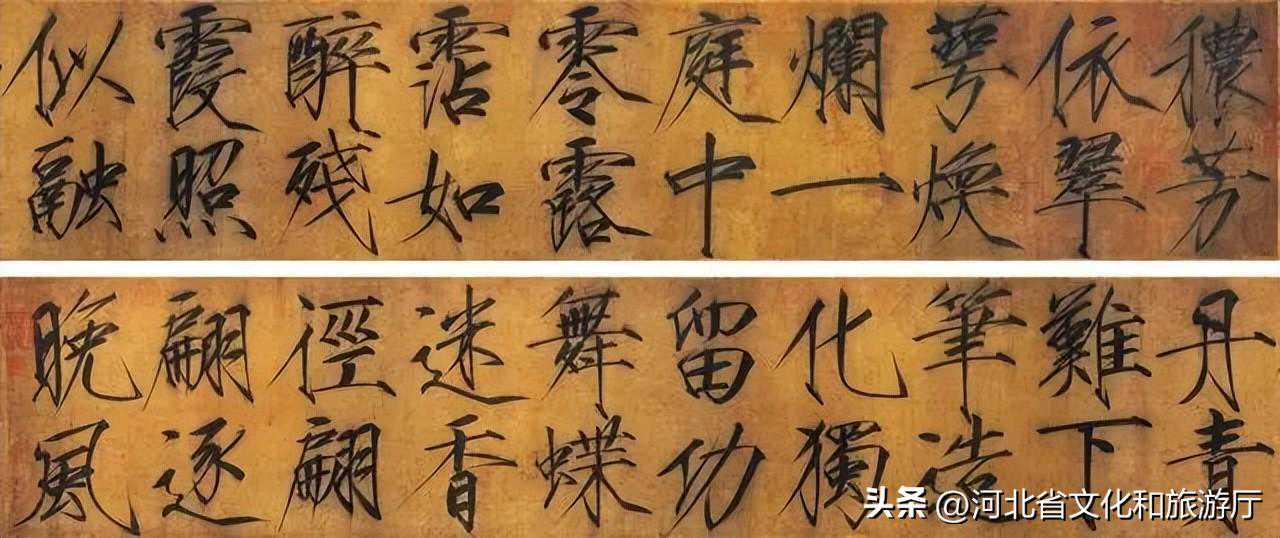 穠芳
依翠
萼煥
爛一
庭中
零露
霑如
醉残
霞照
似融
丹青
難下
筆造
化獨
留功
舞蝶
迷香
徑翩
翩逐
晚風
头条 @河北省文化和旅游厅